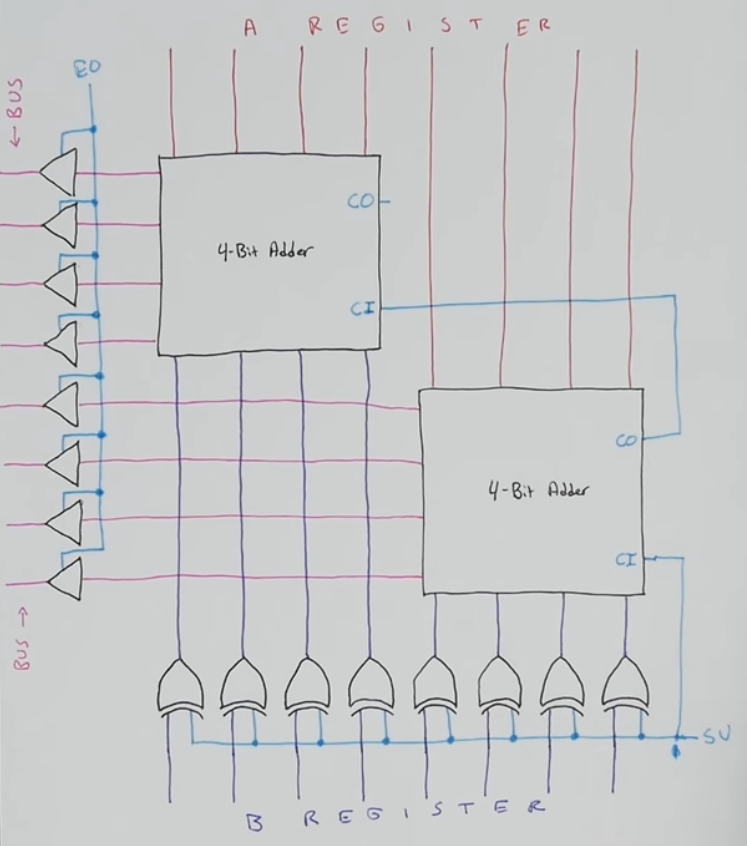 A REGISTER
EO
← BUS
CO
4-Bit Adder
CI
CO
4-Bit Adder
CI
BUS →
SU
B REGISTER